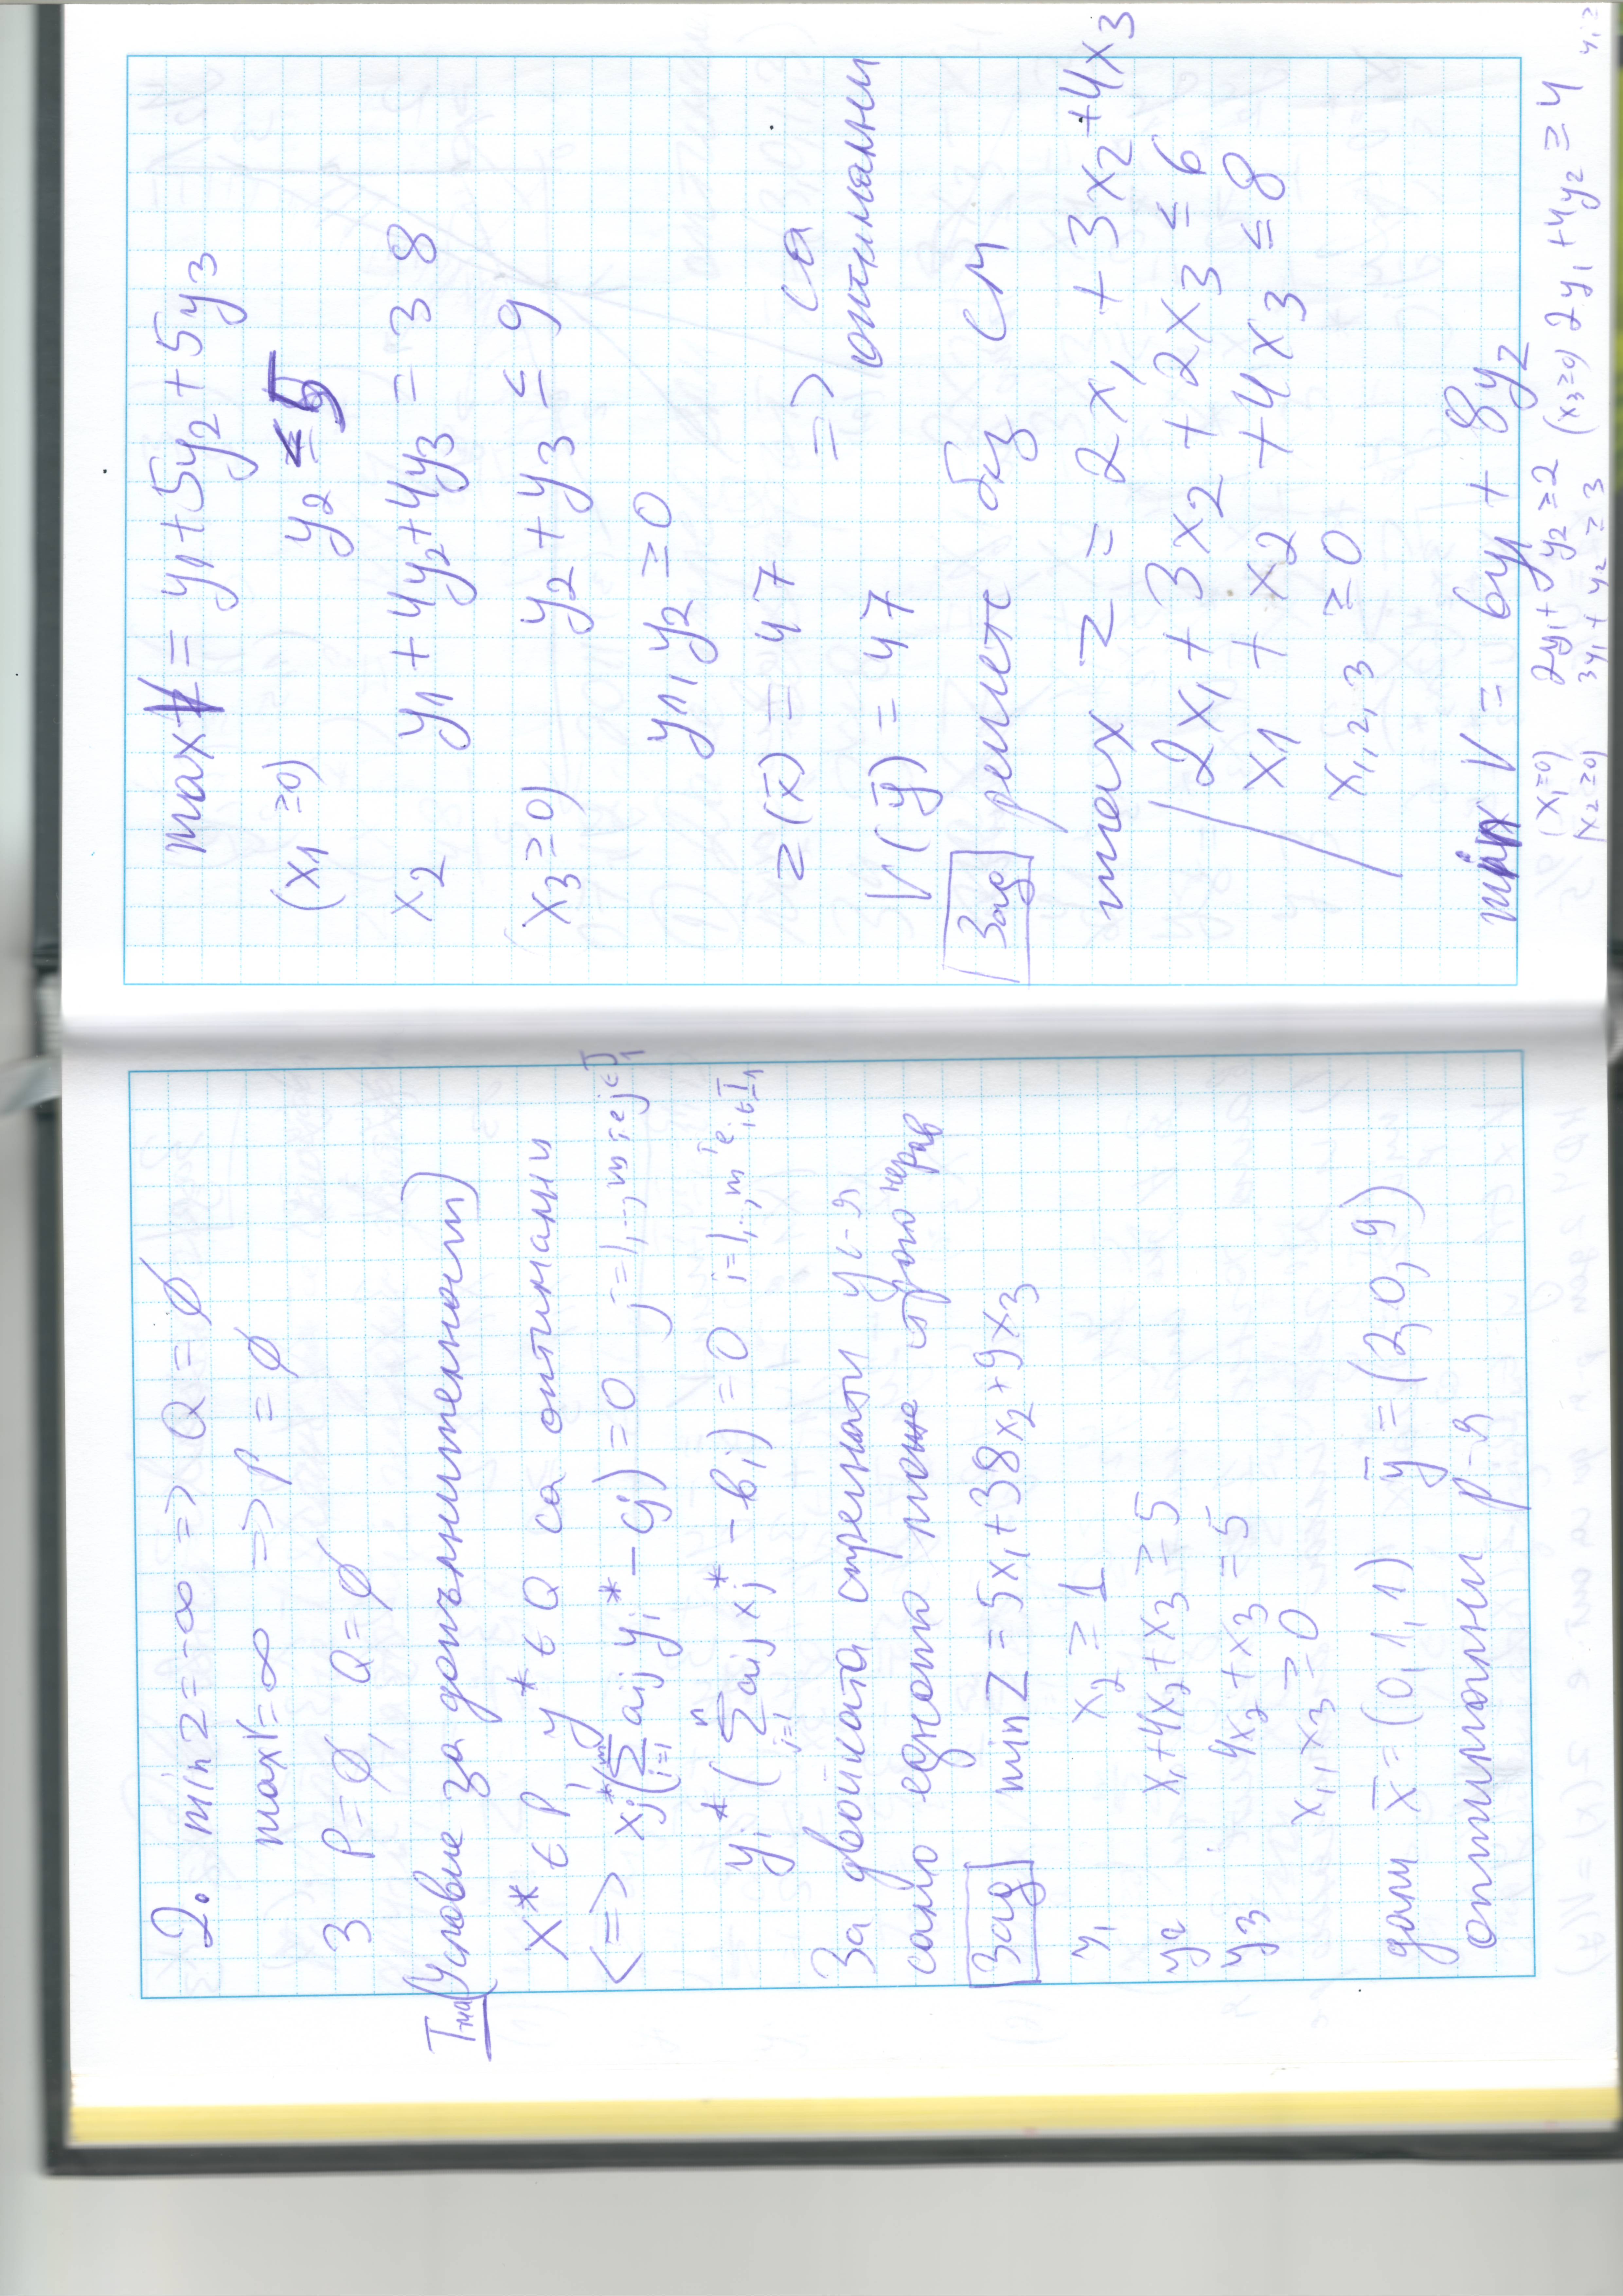 2. min z = -∞ => Q = ∅
max V = ∞ => P = ∅
3 P = ∅, Q = ∅
Т-ма (Условие за допълнителност)
x* ∈ P, y* ∈ Q са оптимални
<=> xj* (∑ i=1 m aij yi* - cj) = 0 j = 1,..,n те j ∈ J1
yi* (∑ j=1 n aij xj* - bi) = 0 i = 1,..,m те i ∈ I1
За двойката спрегнати у-я
само едното може строго нерав
Зад min z = 5x1 + 38x2 + 9x3
y1 x2 ≥ 1
y2 x1 + 4x2 + x3 ≥ 5
y3 4x2 + x3 = 5
x1, x3 ≥ 0
дали x̄ = (0,1,1) ȳ = (2,0,9)
оптимални р-я
max V = y1 + 5y2 + 5y3
(x1 ≥ 0) y2 ≤ 5
x2 y1 + 4y2 + 4y3 = 38
(x3 ≥ 0) y2 + y3 ≤ 9
y1, y2 ≥ 0
z(x̄) = 47
V(ȳ) = 47 => са оптимални
Зад решете без СМ
max z = 2x1 + 3x2 + 4x3
2x1 + 3x2 + 2x3 ≤ 6
x1 + x2 + 4x3 ≤ 8
x1,2,3 ≥ 0
min V = 6y1 + 8y2
(x1 ≥ 0) 2y1 + y2 ≥ 2 (x3 ≥ 0) 2y1 + 4y2 ≥ 4
(x2 ≥ 0) 3y1 + y2 ≥ 3